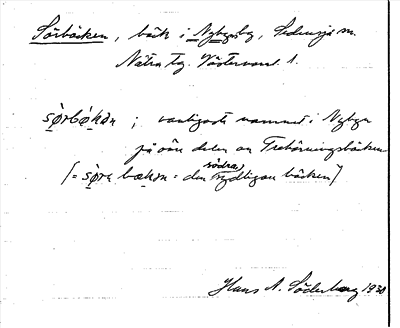 Sörbäcken, bäck i Nybyn by, Sidensjö sn.
Nätra tg. Västernorrl. l.
sö̀rbǽkən ; vanligaste namnet i Nybyn
på den delen av Trehörningsbäcken
södra,
(= sö̀ra bækən = den sydligare bäcken)
Hans A. Söderberg 1930